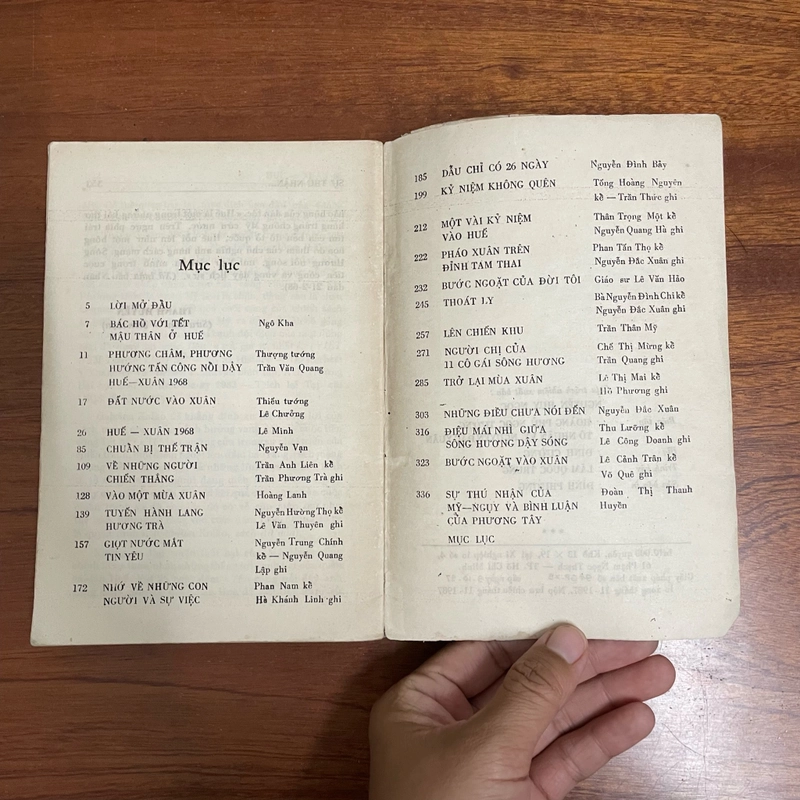 Mục lục
5 LỜI MỞ ĐẦU
7 BÁC HỒ VỚI TẾT Ngô Kha
MẬU THÂN Ở HUẾ
11 PHƯƠNG CHÂM, PHƯƠNG Thượng tướng
HƯỚNG TẤN CÔNG NỒI DẬY Trần Văn Quang
HUẾ—XUÂN 1968
17 ĐẤT NƯỚC VÀO XUÂN Thiếu tướng
Lê Chưởng
26 HUẾ — XUÂN 1968 Lê Minh
85 CHUẦN BỊ THẾ TRẬN Nguyễn Vạn
109 VỀ NHỮNG NGƯỜI Trần Anh Liên kề
CHIẾN THẮNG Trần Phương Trà ghi
128 VÀO MỘT MÙA XUÂN Hoàng Lanh
139 TUYẾN HÀNH LANG Nguyễn Hường Thọ kề
HƯƠNG TRÀ Lê Văn Thuyên ghi
157 GIỌT NƯỚC MẮT Nguyễn Trung Chính
TIN YÊU kề — Nguyễn Quang
Lập ghi
172 NHỚ VỀ NHỮNG CON Phan Nam kề
NGƯỜI VÀ SỰ VIỆC Hà Khánh Linh ghi
185 DẪU CHỈ CÓ 26 NGÀY Nguyễn Đình Bảy
199 KỶ NIỆM KHÔNG QUÊN Tống Hoàng Nguyên
kề — Trần Thức ghi
212 MỘT VÀI KỶ NIỆM Thân Trọng Một kề
VÀO HUẾ Nguyễn Quang Hà ghi
222 PHÁO XUÂN TRÊN Phan Tấn Thọ kề
ĐỈNH TAM THAI Nguyễn Đắc Xuân ghi
232 BƯỚC NGOẶT CỦA ĐỜI TÔI Giáo sư Lê Văn Hảo
245 THOÁT LY Bà Nguyễn Đình Chi kề
Nguyễn Đắc Xuân ghi
257 LÊN CHIẾN KHU Trần Thân Mỹ
271 NGƯỜI CHỊ CỦA Chế Thị Mừng kề
11 CÔ GÁI SÔNG HƯƠNG Trần Quang ghi
285 TRỞ LẠI MÙA XUÂN Lê Thị Mai kề
Hồ Phương ghi
303 NHỮNG ĐIỀU CHƯA NÓI ĐẾN Nguyễn Đắc Xuân
316 ĐIỆU MÁI NHÌ GIỮA Thu Lưỡng kề
SÔNG HƯƠNG DẬY SÓNG Lê Công Doanh ghi
323 BƯỚC NGOẶT VÀO XUÂN Lê Cảnh Trân kề
Võ Quê ghi
336 SỰ THÚ NHẬN CỦA Đoàn Thị Thanh
MỸ—NGỤY VÀ BÌNH LUẬN Huyền
CỦA PHƯƠNG TÂY
MỤC LỤC